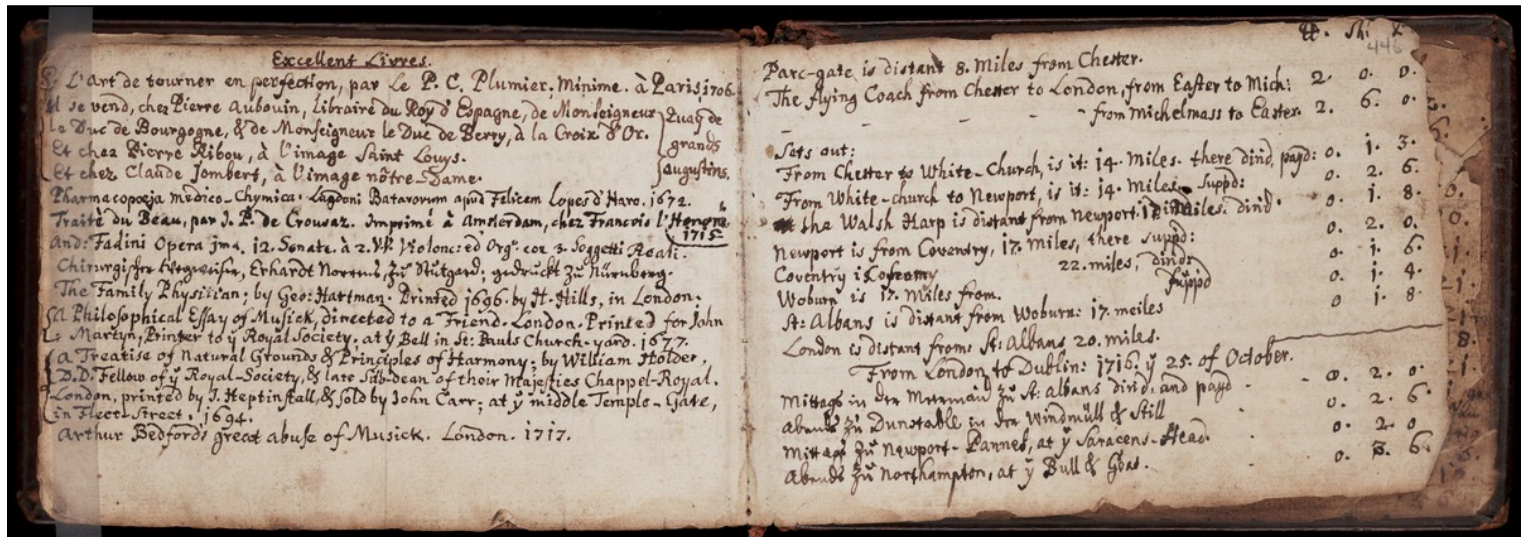 Excellent Livres.
L'art de tourner en perfection, par Le P. C. Plumier, Minime. à Paris, 1706.
Il se vend, chez Pierre Aubouin, libraire du Roy d'Espagne, de Monseigneur
le Duc de Bourgogne, & de Monseigneur le Duc de Berry, à la Croix d'Or.
Et chez Pierre Ribou, à l'image Saint Louys.
Et chez Claude Jombert, à l'image nôtre-Dame.
Quay de
grands
Augustins.
Pharmacopœja Medico-Chymica. Lugdoni Batavorum apud Felicem Lopes d'Haro. 1672.
Traité du Beau, par J. P. de Crousaz. Imprimé à Amsterdam, chez Francois l'Honoré
1715
And: Fadini Opera jma. 12. Sonate. à 2. VV: Violonc: ed Org: con 3. Soggetti Reali.
Chirurgischer Wegweiser, Erhardt Nortnus, zu Stutgard; gedruckt zu Nürnberg.
The Family Physitian; by Geo: Hartman. Printed 1696. by H. Hills, in London.
A Philosophical Essay of Musick, directed to a Friend. London. Printed for John
Martyn, Printer to ÿ Royal Society. at ÿ Bell in St: Pauls Church-yard. 1677.
a Treatise of Natural Grounds & Principles of Harmony; by William Holder,
D.D. Fellow of ÿ Royal-Society, & late Sub-dean of their Majesties Chappel-Royal.
London, printed by J. Heptinstall, & sold by John Carr; at ÿ middle Temple-Gate,
in Fleet-Street. 1694.
Arthur Bedfords great abuse of Musick. London. 1717.
446
Parc-gate is distant 8. Miles from Chester.
The flying Coach from Chester to London, from Easter to Mich: 2. 0. 0.
- - - - - from Michelmass to Easter. 2. 6. 0.
Sets out:
From Chester to White-Church, is it: 14. Miles. there dind, payd: 0. 1. 3.
From White-church to Newport, is it: 14. Miles. Suppd: 0. 2. 6.
the Walsh Harp is distant from Newport. Miles. dind. 0. 1. 8.
Newport is from Coventry, 17. miles, there suppd: 0. 2. 0.
Coventry 22. miles, dind: 0. 1. 6.
Woburn is 17. Miles from. suppd 0. 1. 4.
St: Albans is distant from Woburn: 17. meiles 0 1. 8.
London is distant from: St: Albans 20. miles.
From London to Dublin: 1716. ÿ 25. of October.
Mittags in der Mermaid zu St: Albans dind, and payd - - 0. 2. 0.
Abends zu Dunstable in der Windmüll & Still 0. 2. 6.
Mittags zu Newport-Pannel, at ÿ Saracens-Head. 0. 2. 0
Abends zu Northampton, at ÿ Bull & Goat. 0. 3. 6.